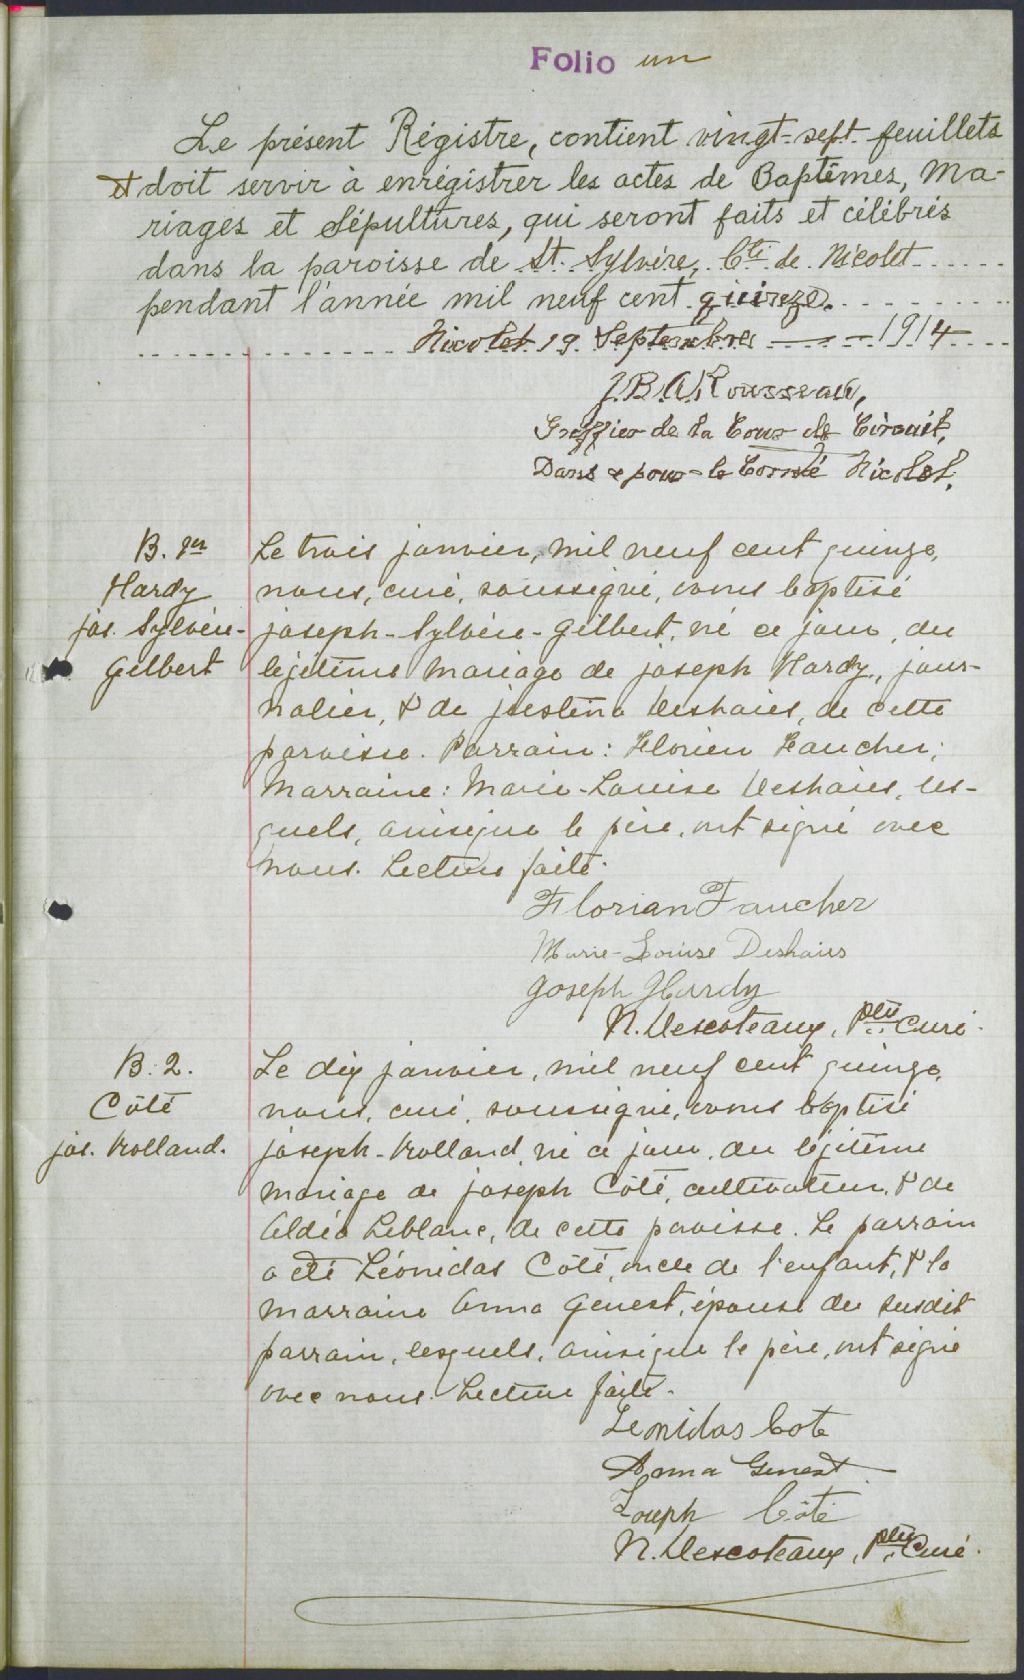 Folio un
Le présent Régistre, contient vingt-sept feuillets
et doit servir à enrégistrer les actes de Baptêmes, Ma-
riages et Sépultures, qui seront faits et célébrés
dans la paroisse de St. Sylvère, Cté de Nicolet
pendant l'année mil neuf cent quinze.
Nicolet 19 Septembre 1914
J.B.A. Rousseau,
Greffier de la Cour de Circuit,
Dans & pour le Comté Nicolet.
B. 1er
Hardy
jos. Sylvère-
Gilbert
Le trois janvier, mil neuf cent quinze,
nous, curé, soussigné, avons baptisé
joseph-Sylvère-Gilbert, né ce jour, du
légitime mariage de joseph Hardy, jour-
nalier, & de justina Deshaies, de cette
paroisse. Parrain: Florien Faucher;
Marraine: Marie-Louise Deshaies, les-
quels, ainsique le père, ont signé avec
nous. Lecture faite.
Florian Faucher
Marie-Louise Deshaies
Joseph Hardy
N. Descoteaux, Ptre Curé.
B. 2.
Côté
jos. Rolland.
Le dix janvier, mil neuf cent quinze,
nous, curé, soussigné, avons baptisé
joseph-Rolland, né ce jour, du légitime
mariage de joseph Côté, cultivateur, & de
Aldéa Leblanc, de cette paroisse. Le parrain
a été Léonidas Côté, oncle de l'enfant, & la
marraine Anna Genest, épouse du susdit
parrain, lesquels, ainsique le père, ont signé
avec nous. Lecture faite.
Leonidas Cote
Anna Genest
Joseph Côté
N. Descoteaux, Ptre Curé.